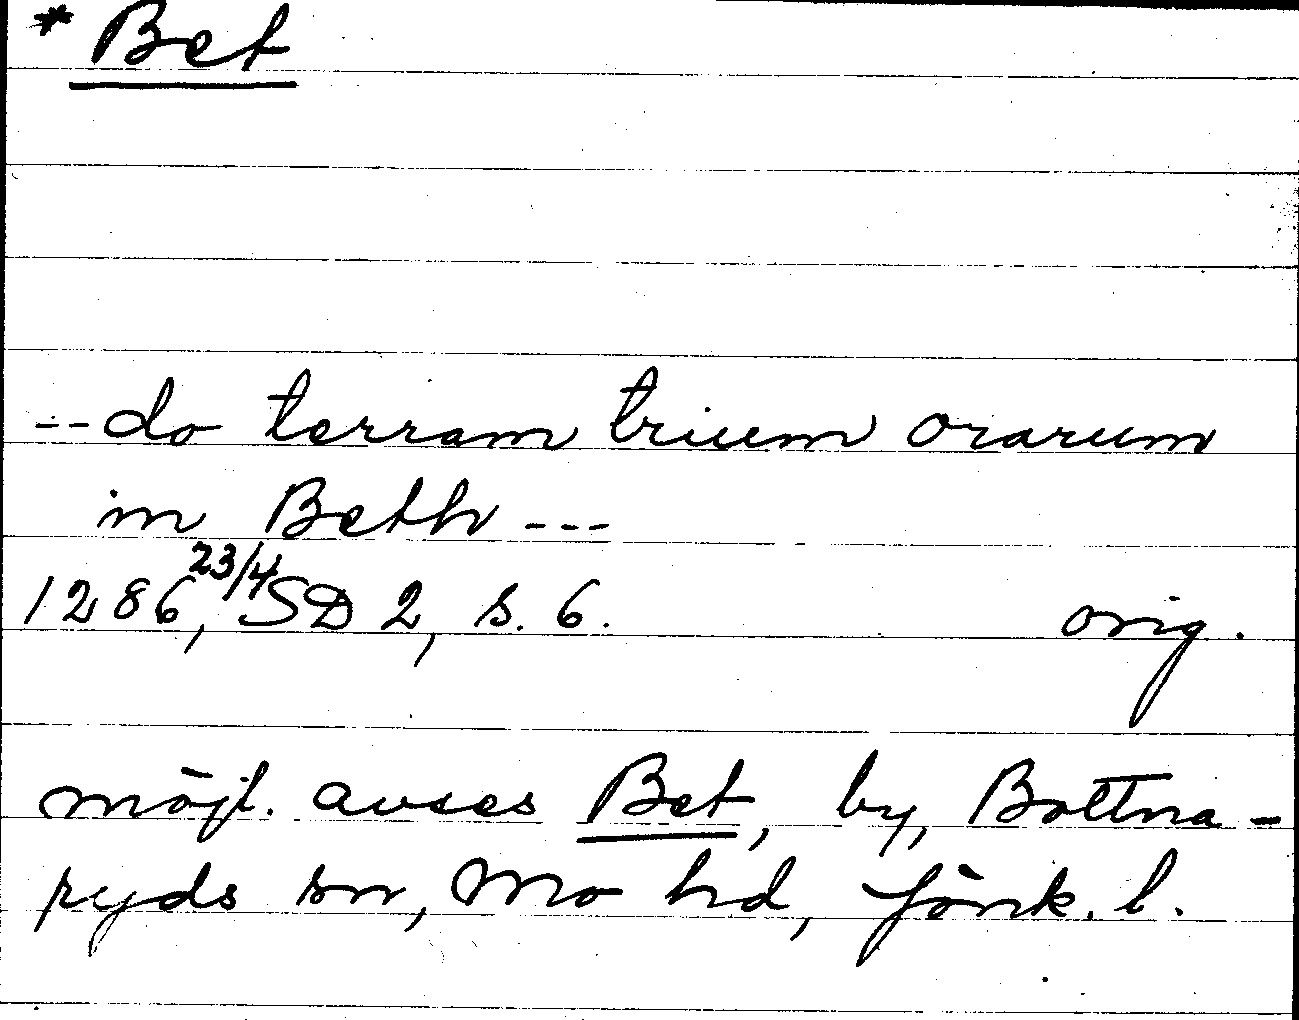 * Bet
--- do terram trium orarum
in Beth ---
1286, 23/4 SD 2, s. 6. orig.
möjl. avses Bet, by, Bottna-
ryds sn, Mo hd, Jönk. l.